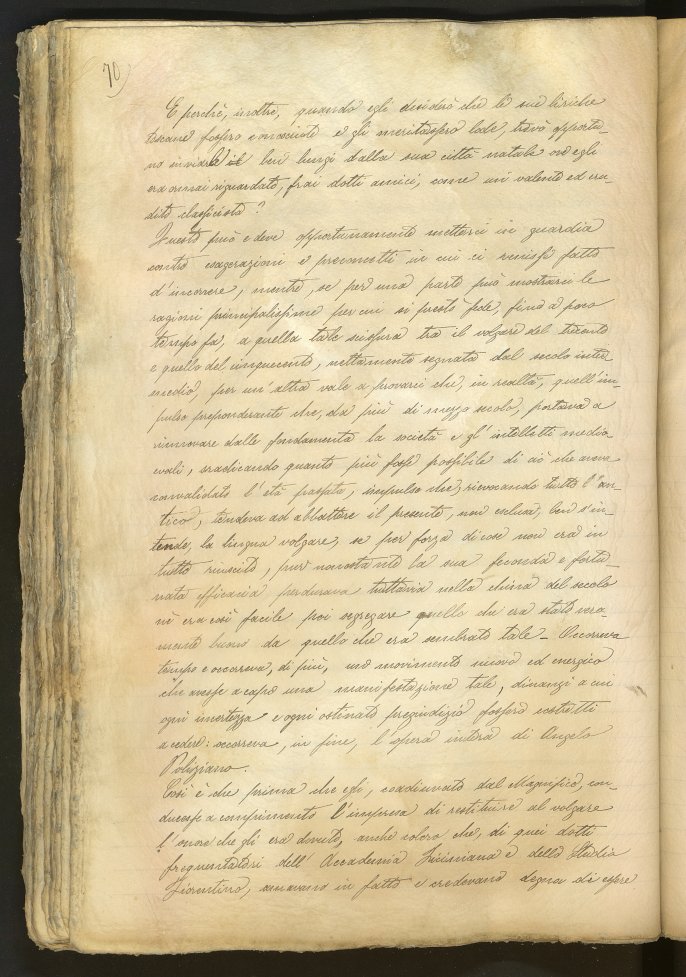 70)
E perchè, inoltre, quando egli desiderò che le sue liriche
toscane fossero conosciute e gli meritassero lode, trovò opportu-
no inviarle ben lungi dalla sua città natale ov'egli
era ormai riguardato, frai dotti amici, come un valente ed eru-
dito classicista?
Questo può e deve opportunamente metterci in guardia
contro esagerazioni e preconcetti in cui ci venisse fatto
d'incorrere, mentre, se per una parte può mostrarci le
ragioni principalissime per cui si prestò fede, fino a poco
tempo fa, a quella tale tra il volgare del trecento
e quello del cinquecento, nettamente segnata dal secolo inter-
medio, per un'altra vale a provarci che, in realtà, quell'im-
pulso preponderante che, da più di mezzo secolo, portava a
rinnovare dalle fondamenta la società e gl'intelletti medio-
evali, sradicando quanto più fosse possibile di ciò che aveva
convalidato l'età passata, impulso che, rievocando tutto l'an-
tico, tendeva ad abbattere il presente, non esclusa, ben s'in-
tende, la lingua volgare, se per forza di cose non era in
tutto riuscito, pure nonostante la sua feconda e fortu-
nata efficacia perdurava tuttavia nella china del secolo
nè era così facile poi segregare quello che era stato vera-
mente buono da quello che era sembrato tale - Occorreva
tempo e occorreva, di più, uno movimento nuovo ed energico
che avesse a capo una manifestazione tale, dinanzi a cui
ogni incertezza e ogni ostinato pregiudizio fossero costretti
a cedere: occorreva, in fine, l'opera intera di Angelo
Poliziano.
Così è che prima che egli, coadiuvato dal Magnifico, con-
ducesse a compimento l'impresa di restituire al volgare
l'onore che gli era dovuto, anche coloro che, di quei dotti
frequentatori dell'Accademia Ficiniana e dello Studio
Fiorentino, amavano in fatto e credevano degna di essere